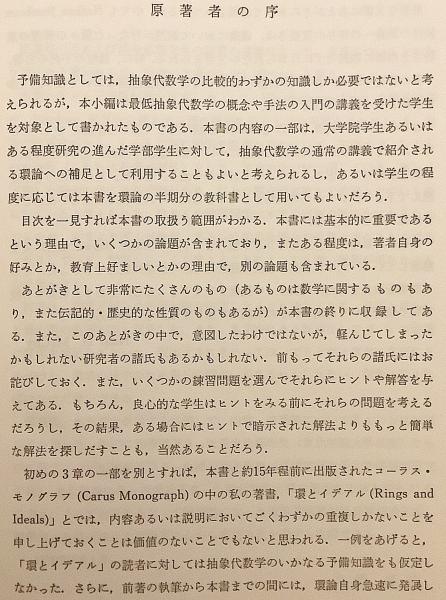 原著者の序
予備知識としては，抽象代数学の比較的わずかの知識しか必要ではないと考
えられるが，本小編は最低抽象代数学の概念や手法の入門の講義を受けた学生
を対象として書かれたものである．本書の内容の一部は，大学院学生あるいは
ある程度研究の進んだ学部学生に対して，抽象代数学の通常の講義で紹介され
る環論への補足として利用することもよいと考えられるし，あるいは学生の程
度に応じては本書を環論の半期分の教科書として用いてもよいだろう．
目次を一見すれば本書の取扱う範囲がわかる．本書には基本的に重要である
という理由で，いくつかの論題が含まれており，またある程度は，著者自身の
好みとか，教育上好ましいとかの理由で，別の論題も含まれている．
あとがきとして非常にたくさんのもの（あるものは数学に関するものもあ
り，また伝記的・歴史的な性質のものもあるが）が本書の終りに収録してあ
る．また，このあとがきの中で，意図したわけではないが，軽んじてしまった
かもしれない研究者の諸氏もあるかもしれない．前もってそれらの諸氏にはお
詑びしておく．また，いくつかの練習問題を選んでそれらにヒントや解答を与
えてある．もちろん，良心的な学生はヒントをみる前にそれらの問題を考える
だろうし，その結果，ある場合にはヒントで暗示された解法よりももっと簡単
な解法を探しだすことも，当然あることだろう．
初めの３章の一部を別とすれば，本書と約15年程前に出版されたコーラス・
モノグラフ (Carus Monograph) の中の私の著書，「環とイデアル (Rings and
Ideals)」とでは，内容あるいは説明においてごくわずかの重複しかないことを
申し上げておくことは価値のないことでもないと思われる．一例をあげると，
「環とイデアル」の読者に対しては抽象代数学のいかなる予備知識をも仮定し
なかった．さらに，前著の執筆から本書までの間には，環論自身急速に発展し